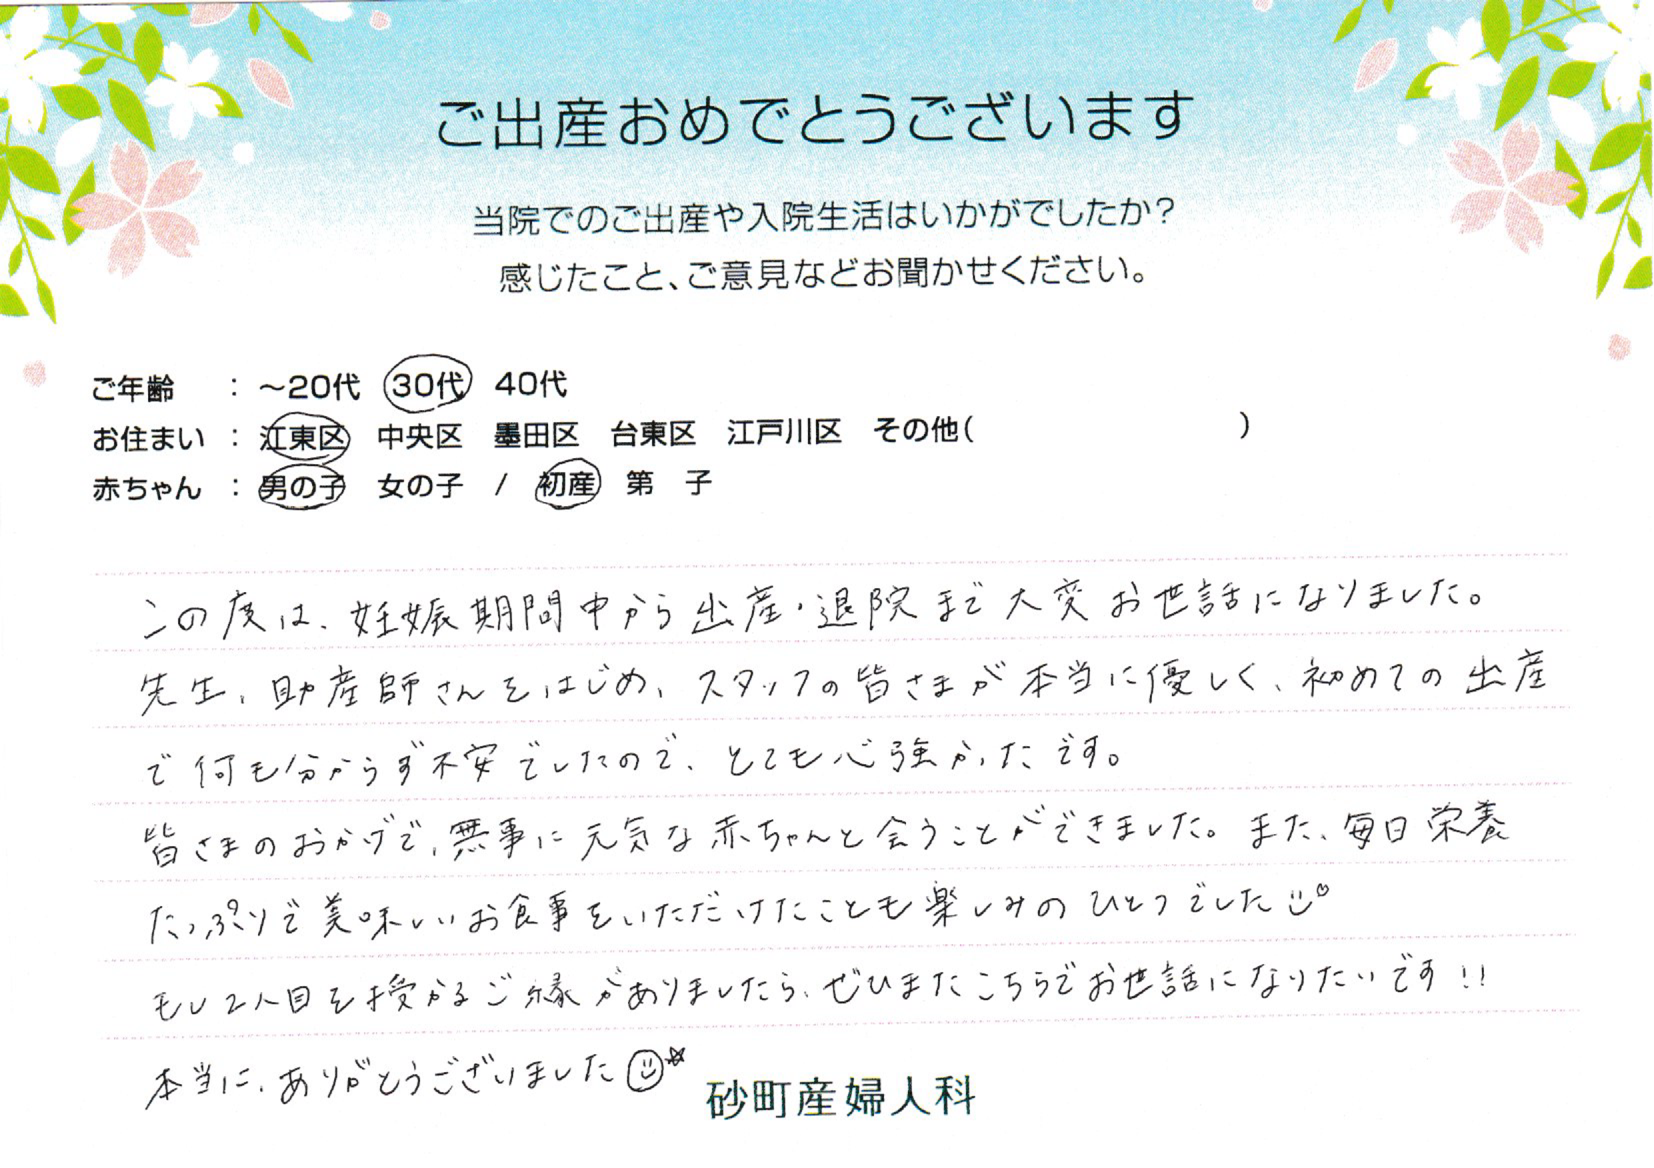 ご出産おめでとうございます
当院でのご出産や入院生活はいかがでしたか?
感じたこと、ご意見などお聞かせください。
ご年齢 : ～20代 30代 40代
お住まい : 江東区 中央区 墨田区 台東区 江戸川区 その他( )
赤ちゃん : 男の子 女の子 / 初産 第 子
この度は、妊娠期間中から出産・退院まで大変お世話になりました。
先生、助産師さんをはじめ、スタッフの皆さまが本当に優しく、初めての出産
で何も分からず不安でしたので、とても心強かったです。
皆さまのおかげで、無事に元気な赤ちゃんと会うことができました。また、毎日栄養
たっぷりで美味しいお食事をいただけたことも楽しみのひとつでした
もし2人目を授かるご縁がありましたら、ぜひまたこちらでお世話になりたいです!!
本当に、ありがとうございました
砂町産婦人科